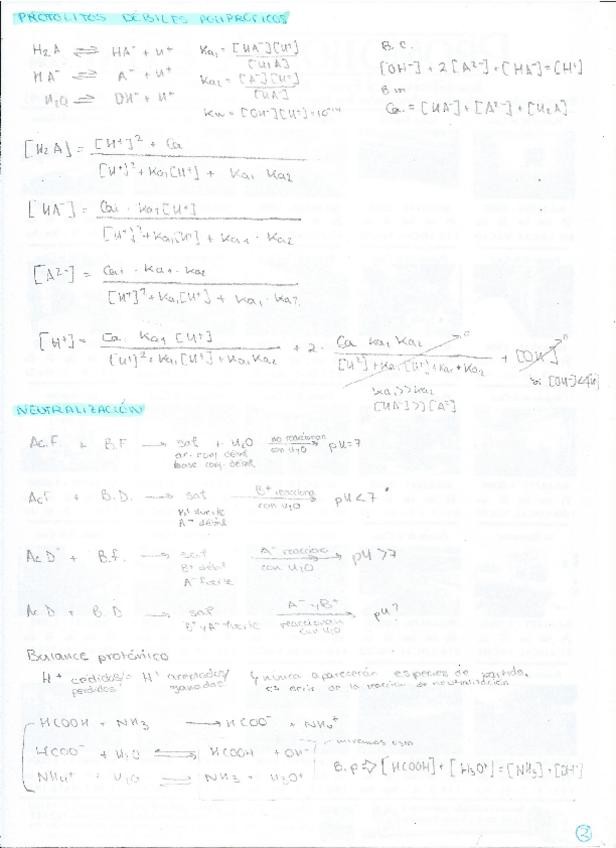 PROTOLITOS DÉBILES POLIPRÓTICOS
H₂A ⇌ HA⁻ + H⁺ Ka₁ = [HA⁻][H⁺] / [H₂A] B.C.
HA⁻ ⇌ A⁻ + H⁺ Ka₂ = [A⁻][H⁺] / [HA] [OH⁻] + 2[A²⁻] + [HA⁻] = [H⁺]
H₂O ⇌ OH⁻ + H⁺ Kw = [OH⁻][H⁺] = 10⁻¹⁴ B.m
Ca = [HA⁻] + [A²⁻] + [H₂A]
[H₂A] = [H⁺]² + Ca / [H⁺]² + Ka₁[H⁺] + Ka₁ Ka₂
[HA⁻] = Ca · Ka₁[H⁺] / [H⁺]² + Ka₁[H⁺] + Ka₁ · Ka₂
[A²⁻] = Ca · Ka₁ · Ka₂ / [H⁺]² + Ka₁[H⁺] + Ka₁ · Ka₂
[H⁺] = Ca Ka₁ [H⁺] / [H⁺]² + Ka₁[H⁺] + Ka₁Ka₂ + 2 · Ca Ka₁ Ka₂ / [H²] + Ka₁[H⁺] + Ka₁ · Ka₂ → 0 + [OH⁻] → 0
Ka₁ >> Ka₂ si [OH⁻] <
[HA⁻] >> [A²⁻]
NEUTRALIZACIÓN
Ac.F + B.F → sal + H₂O no reaccionan con H₂O → pH = 7
ac. conj. débil
base conj. débil
AcF + B.D. → sal B⁺ reacciona con H₂O → pH < 7
B⁺ fuerte
A⁻ débil
AcD + B.f. → sal A⁻ reacciona con H₂O → pH > 7
B⁺ débil
A⁻ fuerte
AcD + B.D → sal A⁻ y B⁺ reaccionan con H₂O → pH?
B⁺ y A⁻ fuerte
Balance protónico
H⁺ cedidos/perdidos = H⁺ aceptados/ganados y nunca aparecerán especies de partida,
es decir de la reacción de neutralización
HCOOH + NH₃ → HCOO⁻ + NH₄⁺
HCOO⁻ + H₂O ⇌ HCOOH + OH⁻ miramos esto
NH₄⁺ + H₂O ⇌ NH₃ + H₃O⁺ B.p ⇒ [HCOOH] + [H₃O⁺] = [NH₃] + [OH⁻]
2